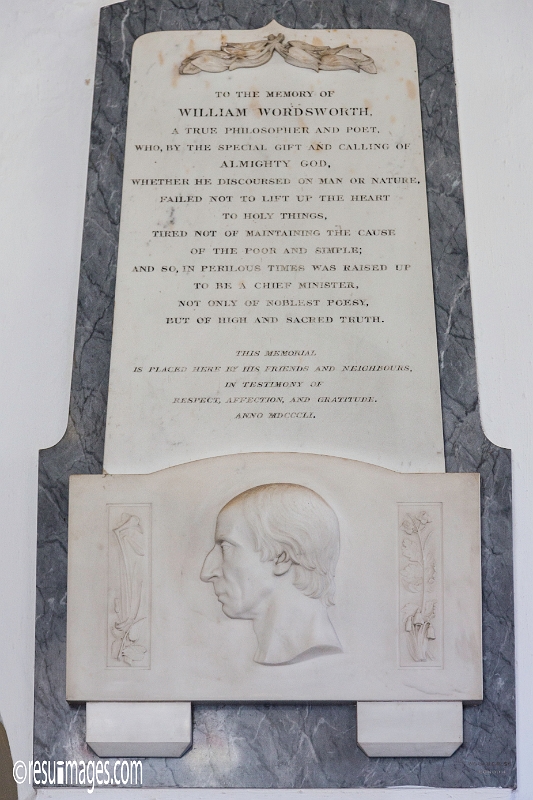 TO THE MEMORY OF
WILLIAM WORDSWORTH.
A TRUE PHILOSOPHER AND POET,
WHO, BY THE SPECIAL GIFT AND CALLING OF
ALMIGHTY GOD,
WHETHER HE DISCOURSED ON MAN OR NATURE,
FAILED NOT TO LIFT UP THE HEART
TO HOLY THINGS,
TIRED NOT OF MAINTAINING THE CAUSE
OF THE POOR AND SIMPLE;
AND SO, IN PERILOUS TIMES WAS RAISED UP
TO BE A CHIEF MINISTER,
NOT ONLY OF NOBLEST POESY,
BUT OF HIGH AND SACRED TRUTH.
THIS MEMORIAL
IS PLACED HERE BY HIS FRIENDS AND NEIGHBOURS,
IN TESTIMONY OF
RESPECT, AFFECTION, AND GRATITUDE.
ANNO MDCCCLI.
©resu-images.com